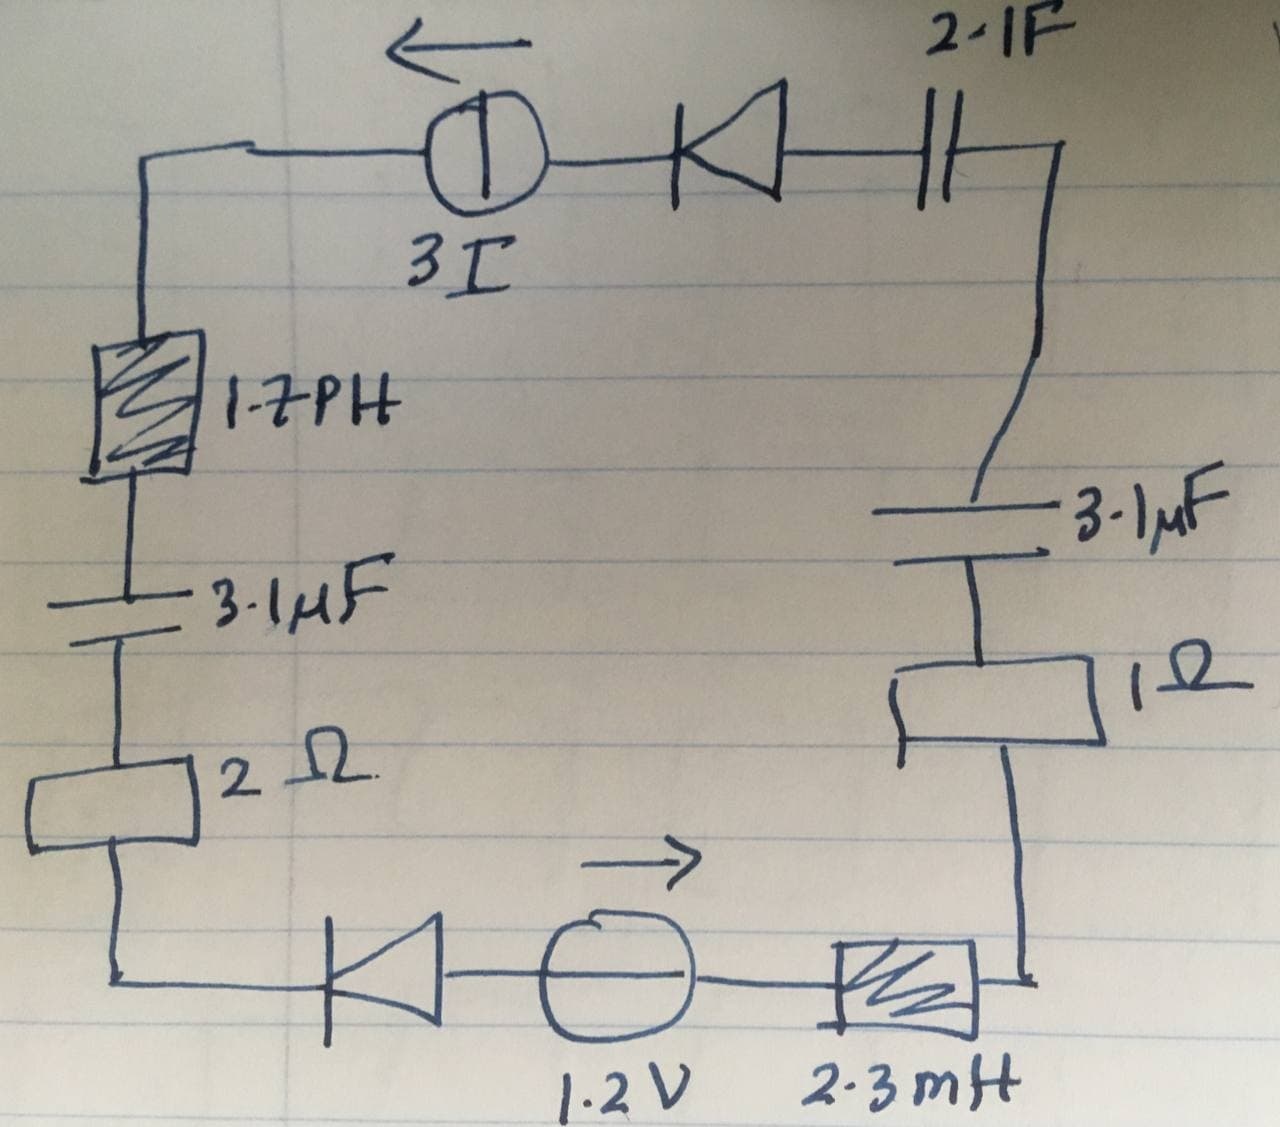 2.1F
3I
1.7PH
3.1μF
3.1μF
1Ω
2Ω
1.2V
2.3mH